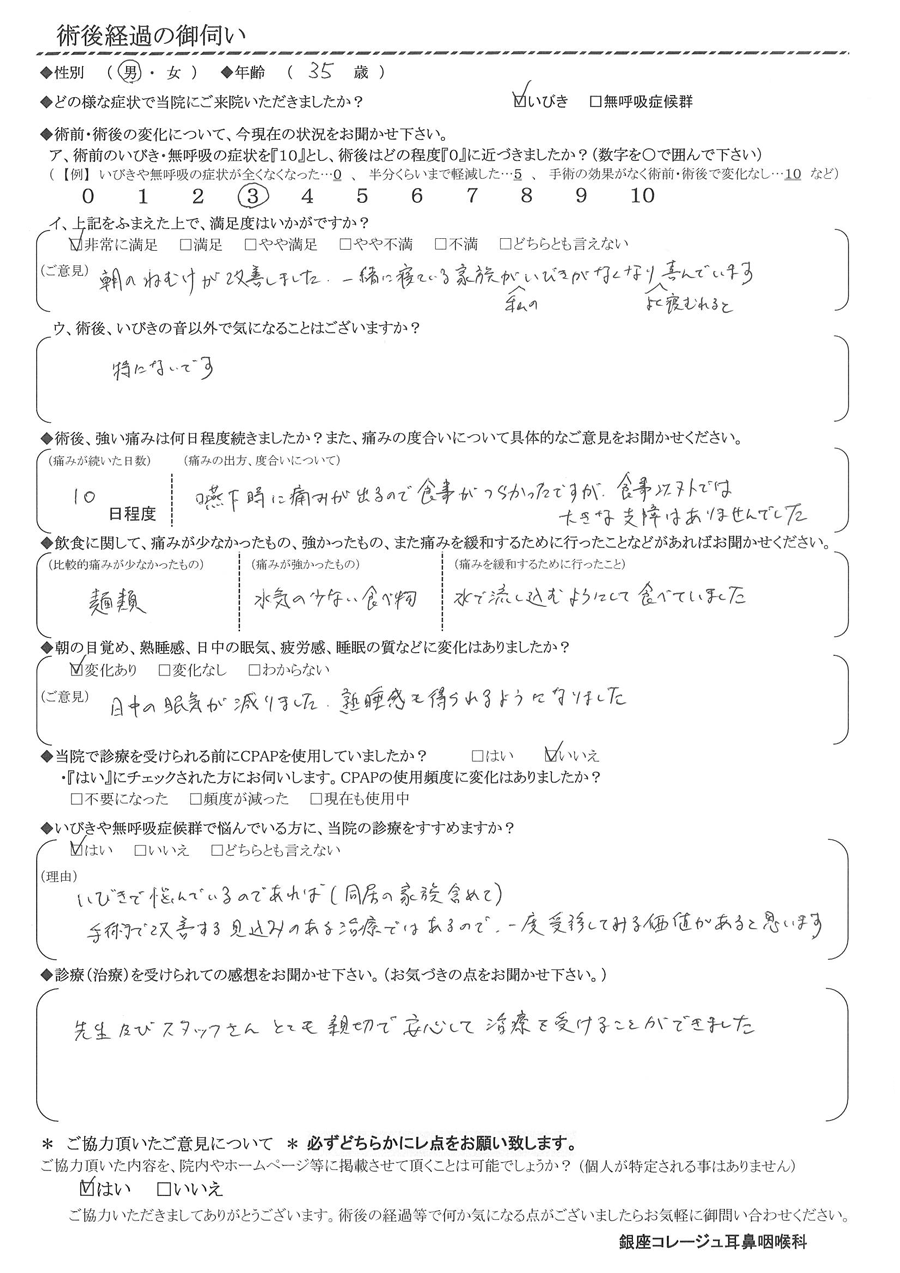 術後経過の御伺い
◆性別 （ 男 ・ 女 ） ◆年齢 （ 35 歳 ）
◆どの様な症状で当院にご来院いただきましたか？ ☑いびき □無呼吸症候群
◆術前・術後の変化について、今現在の状況をお聞かせ下さい。
ア、術前のいびき・無呼吸の症状を『10』とし、術後はどの程度『0』に近づきましたか？（数字を〇で囲んで下さい）
（ 【例】 いびきや無呼吸の症状が全くなくなった…0 、 半分くらいまで軽減した…5 、 手術の効果がなく術前・術後で変化なし…10 など）
0 1 2 3 4 5 6 7 8 9 10
イ、上記をふまえた上で、満足度はいかがですか？
☑非常に満足 □満足 □やや満足 □やや不満 □不満 □どちらとも言えない
（ご意見） 朝のねむけが改善しました．一緒に寝ている家族がいびきがなくなり喜んでいます
私の よく寝むれると
ウ、術後、いびきの音以外で気になることはございますか？
特にないです
◆術後、強い痛みは何日程度続きましたか？また、痛みの度合いについて具体的なご意見をお聞かせください。
（痛みが続いた日数） （痛みの出方、度合いについて）
10 日程度 嚥下時に痛みが出るので食事がつらかったですが、食事以外では
大きな支障はありませんでした
◆飲食に関して、痛みが少なかったもの、強かったもの、また痛みを緩和するために行ったことなどがあればお聞かせください。
（比較的痛みが少なかったもの） （痛みが強かったもの） （痛みを緩和するために行ったこと）
麺類 水気の少ない食べ物 水で流し込むようにして食べていました
◆朝の目覚め、熟睡感、日中の眠気、疲労感、睡眠の質などに変化はありましたか？
☑変化あり □変化なし □わからない
（ご意見） 日中の眠気が減りました．熟睡感も得られるようになりました
◆当院で診療を受けられる前にCPAPを使用していましたか？ □はい ☑いいえ
・『はい』にチェックされた方にお伺いします。CPAPの使用頻度に変化はありましたか？
□不要になった □頻度が減った □現在も使用中
◆いびきや無呼吸症候群で悩んでいる方に、当院の診療をすすめますか？
☑はい □いいえ □どちらとも言えない
（理由）
いびきで悩んでいるのであれば（同居の家族含めて）
手術で改善する見込みのある治療ではあるので、一度受診してみる価値があると思います
◆診療（治療）を受けられての感想をお聞かせ下さい。（お気づきの点をお聞かせ下さい。）
先生及びスタッフさんとても親切で安心して治療を受けることができました
＊ ご協力頂いたご意見について ＊ 必ずどちらかにレ点をお願い致します。
ご協力頂いた内容を、院内やホームページ等に掲載させて頂くことは可能でしょうか？（個人が特定される事はありません）
☑はい □いいえ
ご協力いただきましてありがとうございます。術後の経過等で何か気になる点がございましたらお気軽に御問い合わせください。
銀座コレージュ耳鼻咽喉科